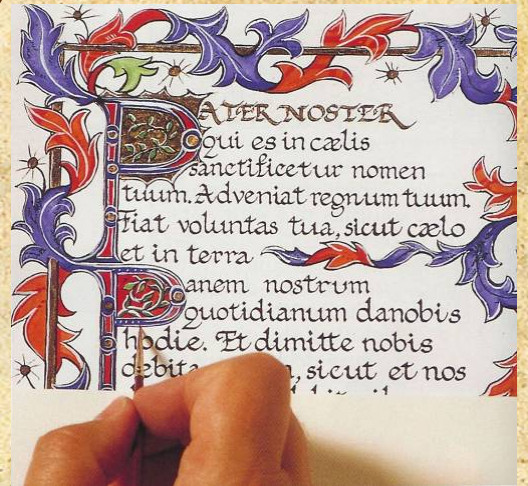 PATER NOSTER
qui es in cælis
sanctificetur nomen
tuum. Adveniat regnum tuum.
Fiat voluntas tua, sicut cælo
et in terra
Panem nostrum
quotidianum danobis
hodie. Et dimitte nobis
debita , sicut et nos